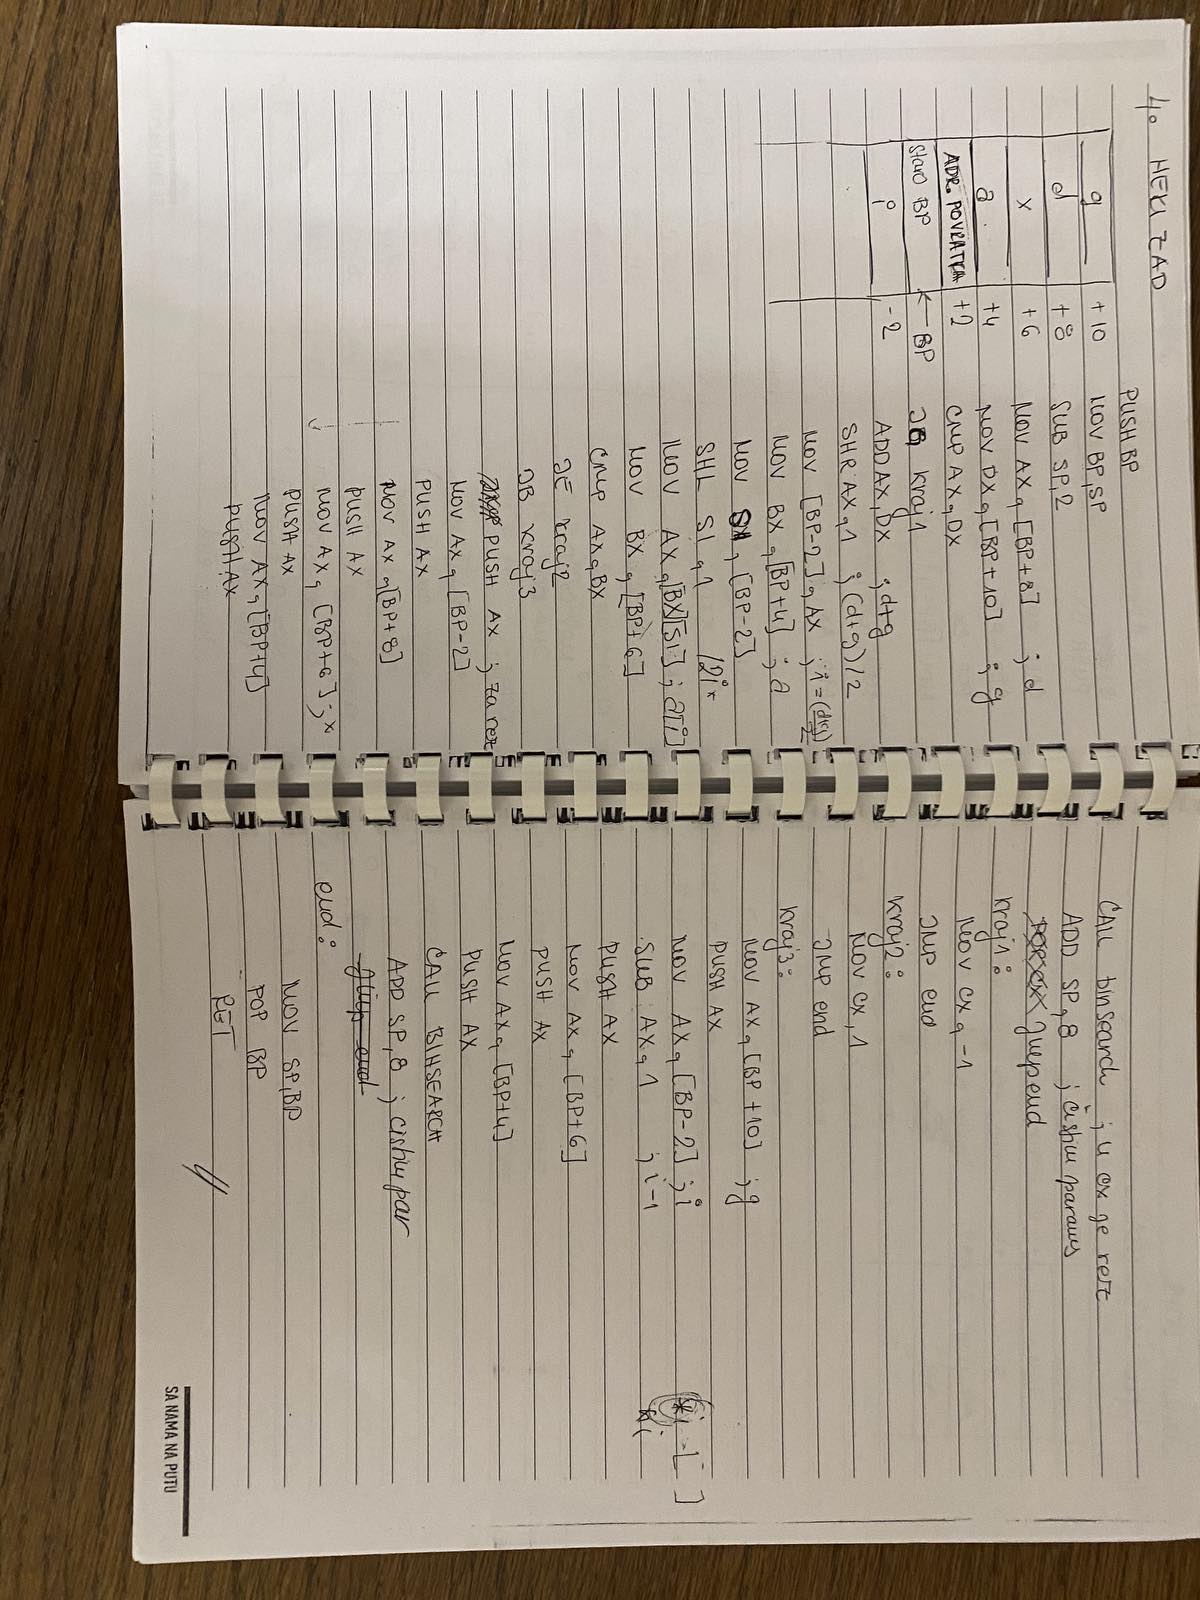 4. NEKI ZAD
g +10
d +8
x +6
a +4
ADR. POVRATKA +2
stari BP ← BP
i -2
PUSH BP
MOV BP, SP
SUB SP, 2
MOV AX, [BP+8] ; d
MOV DX, [BP+10] ; g
CMP AX, DX
kraj1
ADD AX, DX ; d+g
SHR AX, 1 ; (d+g)/2
MOV [BP-2], AX ; i = (d+g)/2
MOV BX, [BP+4] ; a
MOV , [BP-2]
SHL SI, 1
MOV AX, [BX][SI] ; a[i]
MOV BX, [BP+6]
CMP AX, BX
JE kraj2
JB kraj3
PUSH AX ; za rez
MOV AX, [BP-2]
PUSH AX
MOV AX, [BP+8]
PUSH AX
MOV AX, [BP+6] ; x
PUSH AX
MOV AX, [BP+4]
PUSH AX
CALL binSearch ; u cx je rez
ADD SP, 8 ; čistim params
kraj1:
MOV CX, -1
JMP end
kraj2:
MOV CX, 1
JMP end
kraj3:
MOV AX, [BP+10] ; g
PUSH AX
MOV AX, [BP-2] ; i
SUB AX, 1 ; i-1
PUSH AX
MOV AX, [BP+6]
PUSH AX
MOV AX, [BP+4]
PUSH AX
CALL BINSEARCH
ADD SP, 8 ; cistim par
end:
MOV SP, BP
POP BP
RET
SA NAMA NA PUTU